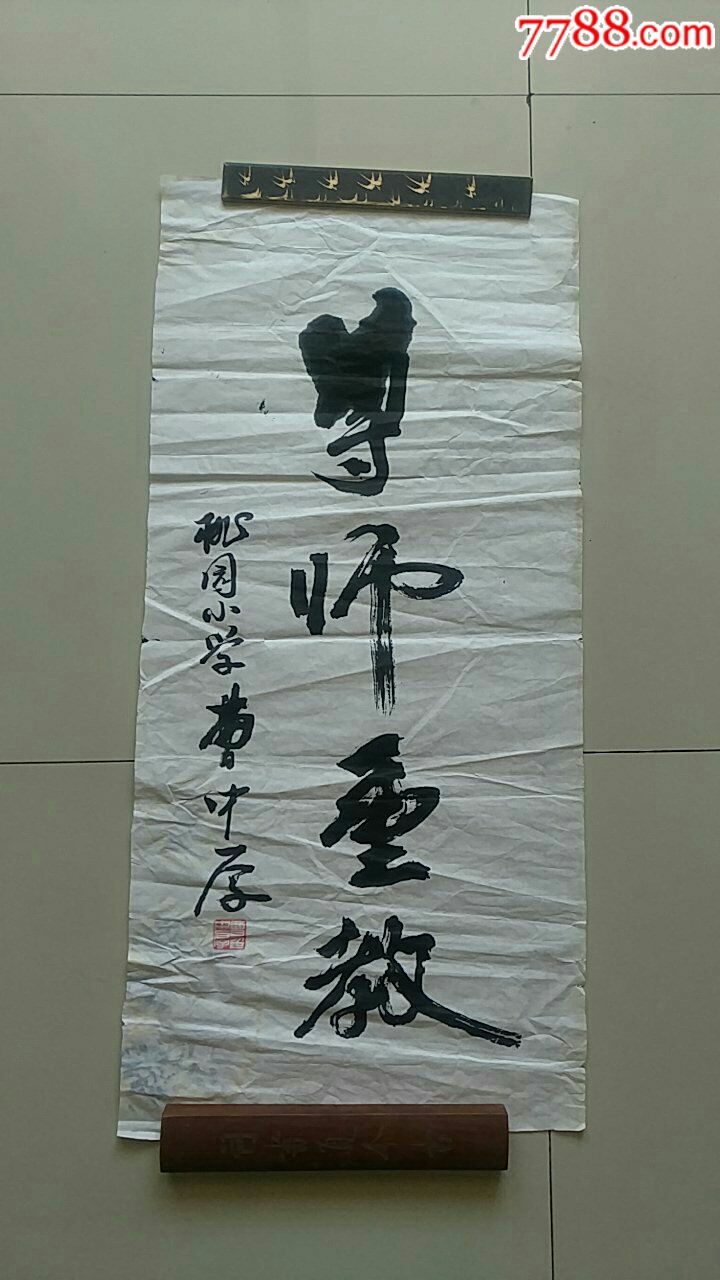 7788.com
尊师重教
桃园小学曹中厚